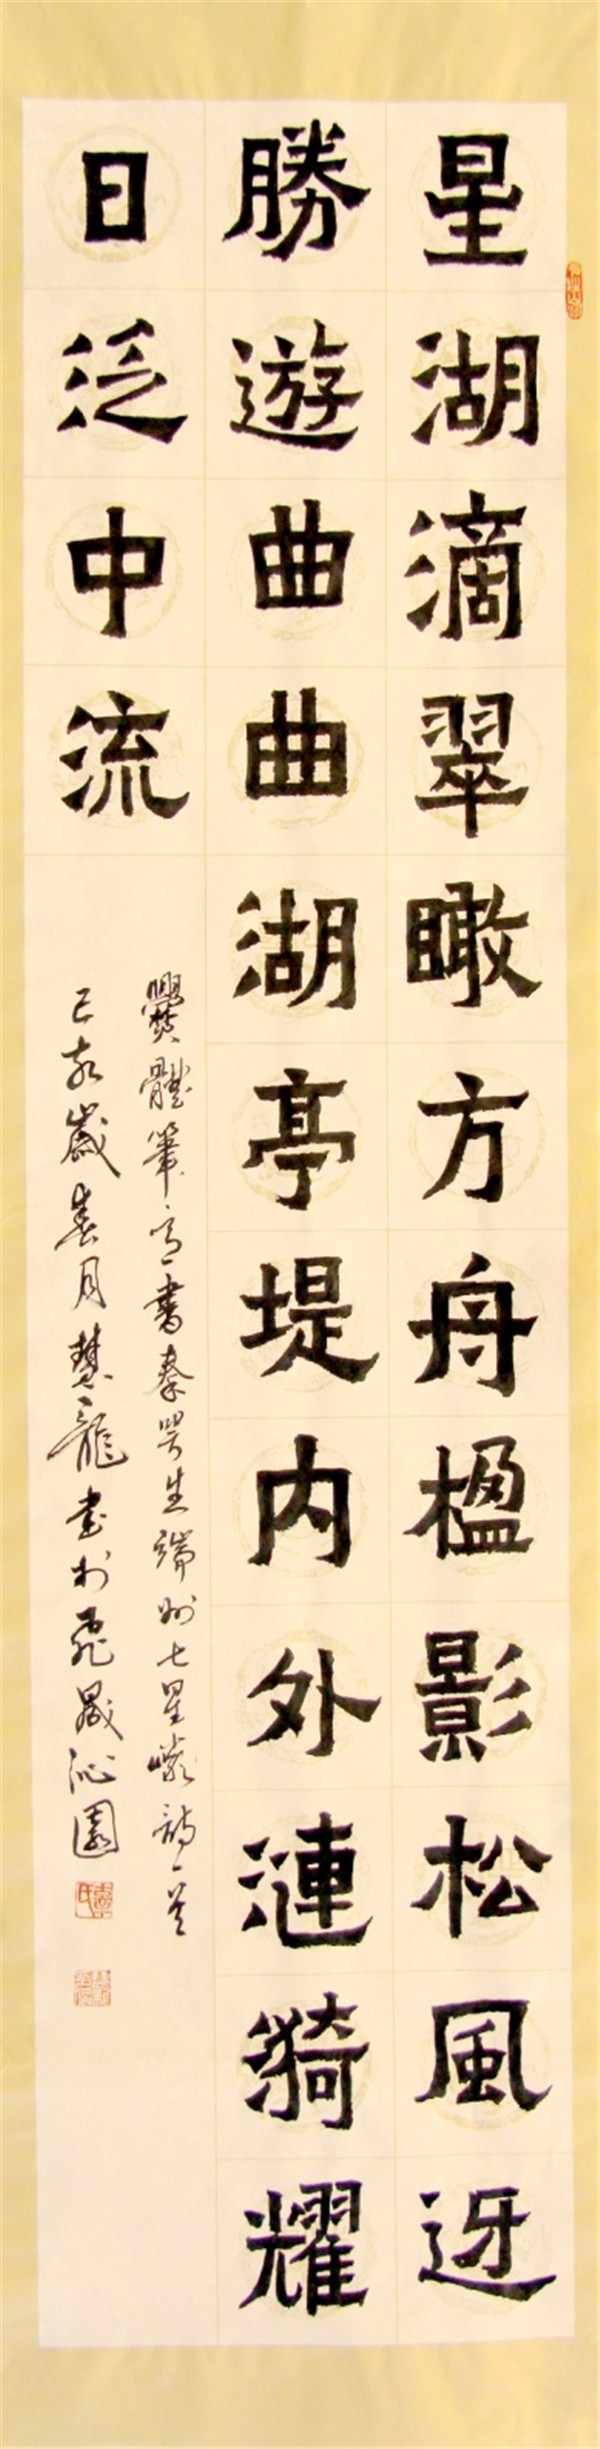 星湖滴翠瞰方舟楹影松風迓
勝遊曲曲湖亭堤內外漣漪耀
日泛中流
爨體筆意書秦咢生端州七星巖詩一首
己亥歲春月慧龍書於飛晟沁園